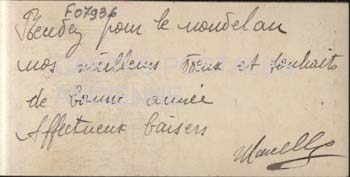 F07936
pour le nouvel an
nos meilleurs vœux et souhaits
de bonne année
Affectueux baisers
Marcelle